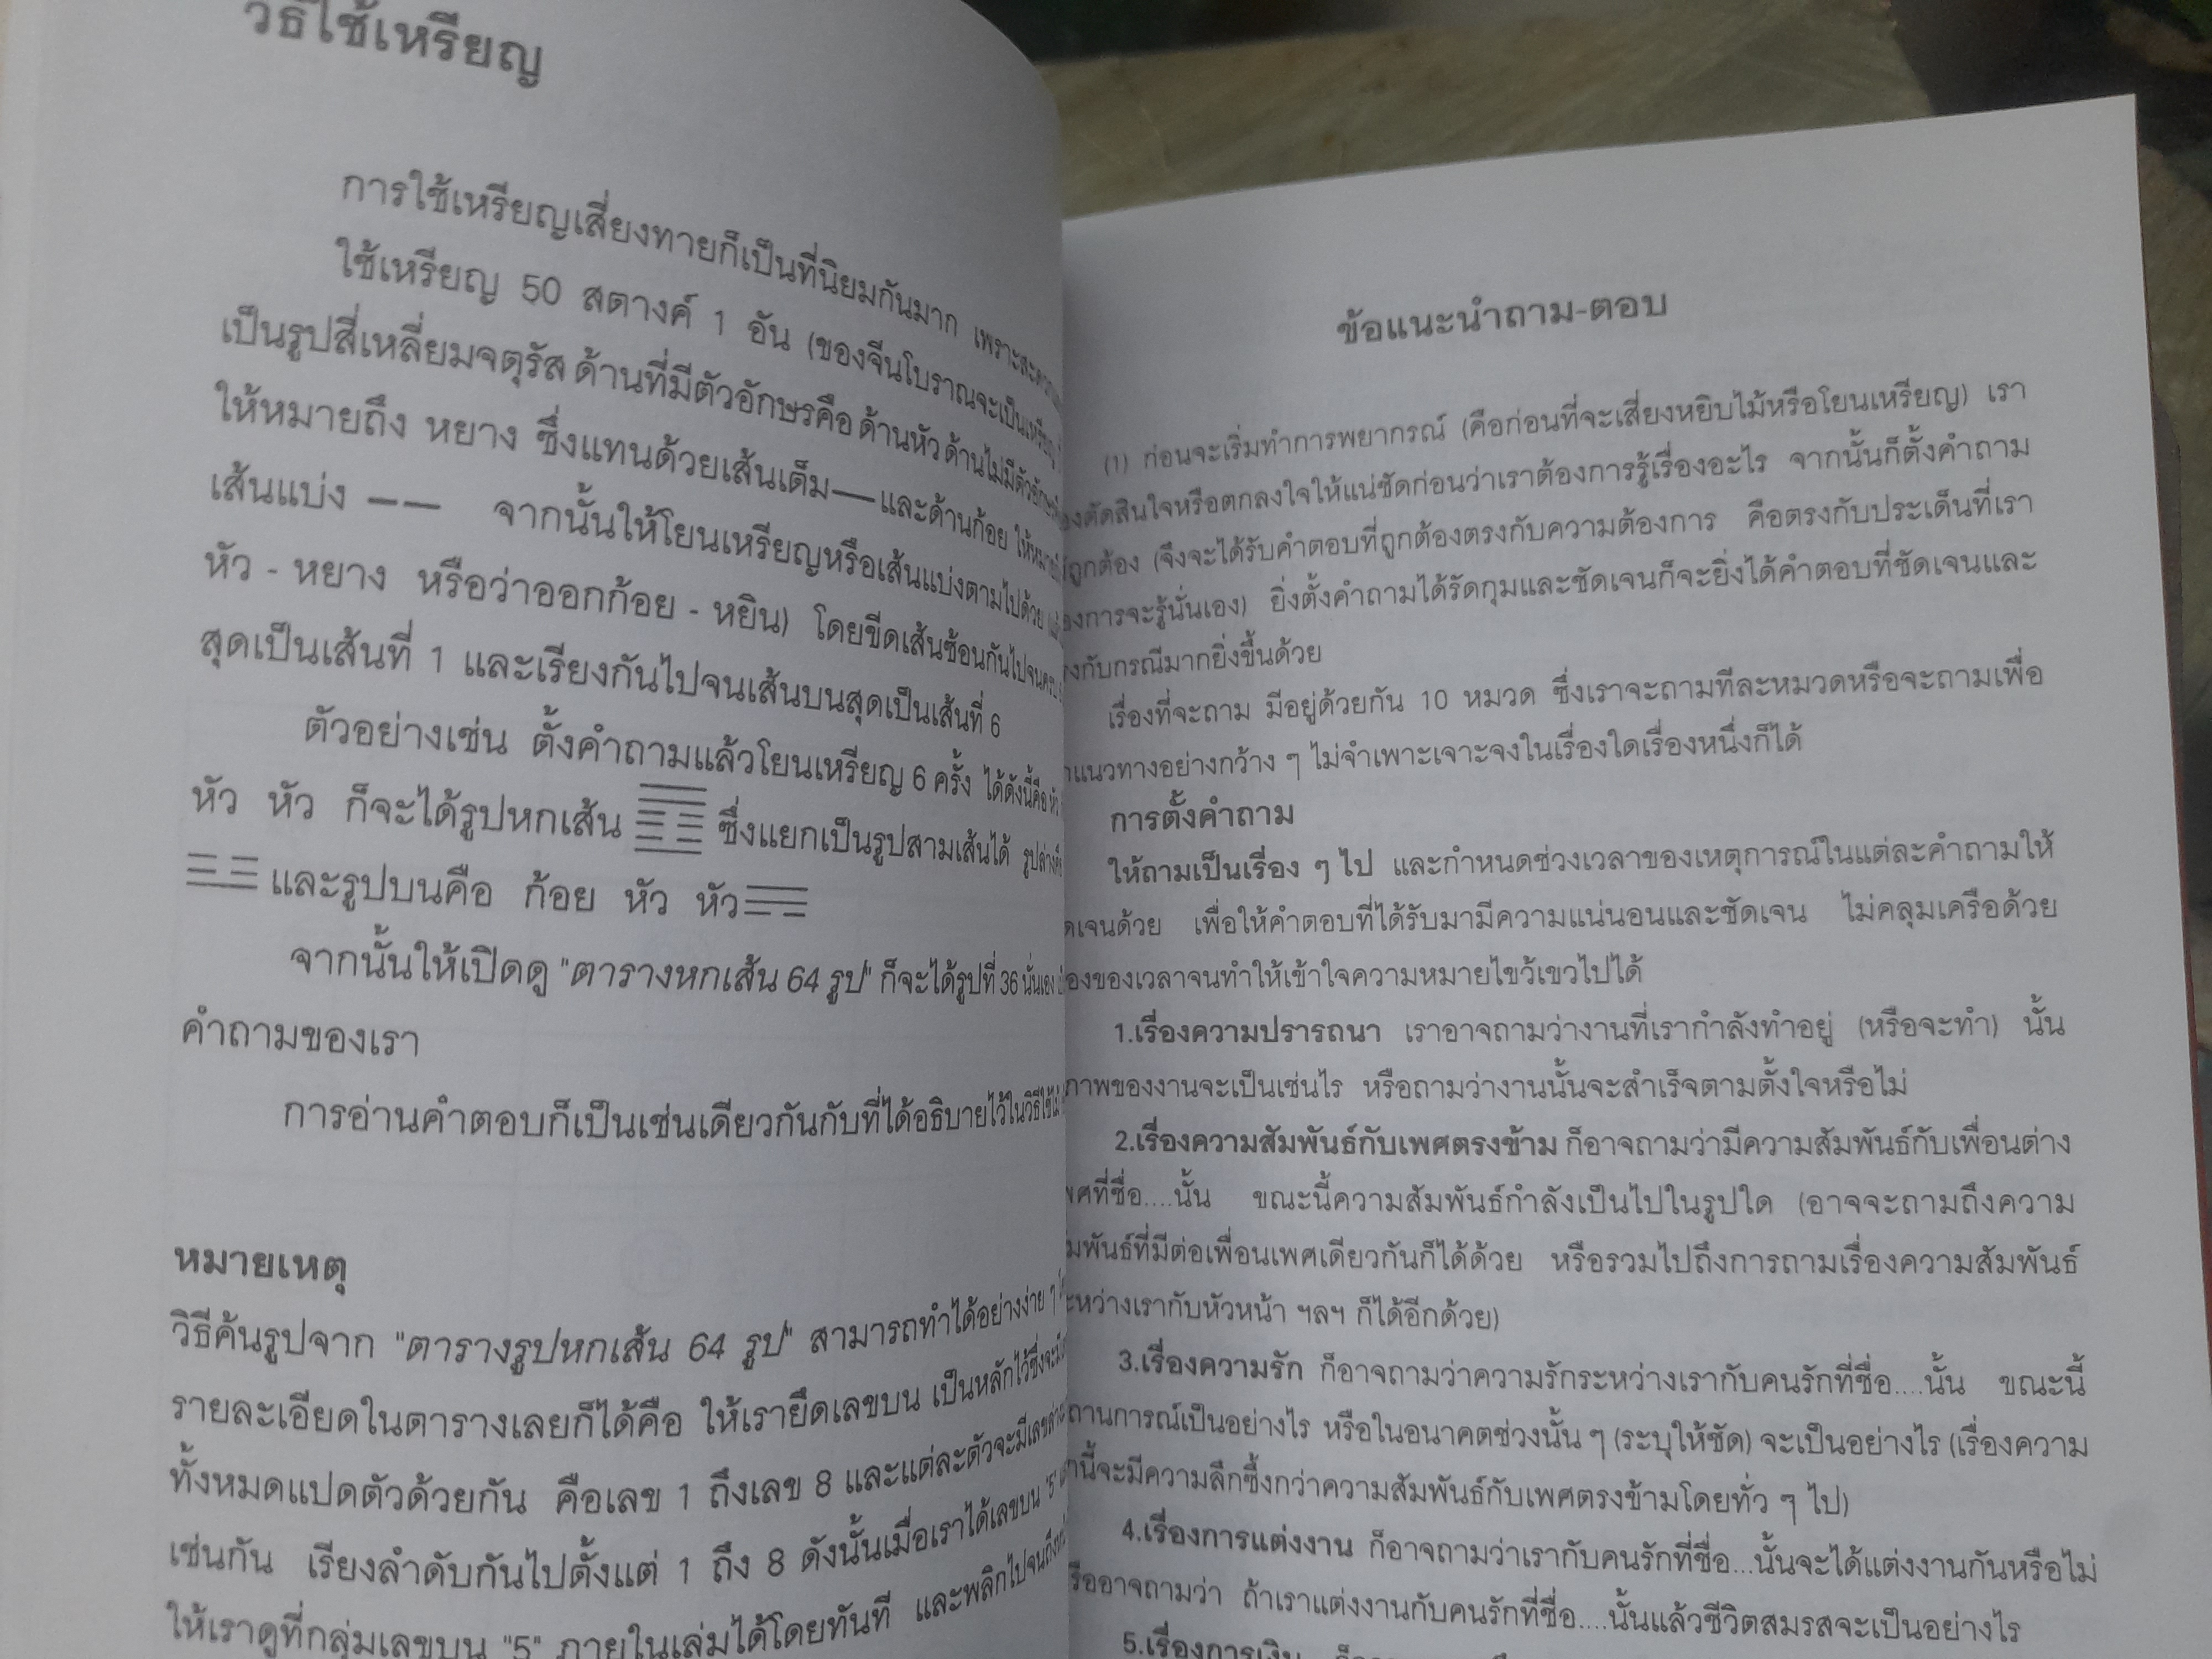 วิธีใช้เหรียญ
การใช้เหรียญเสี่ยงทายก็เป็นที่นิยมกันมาก
ใช้เหรียญ 50 สตางค์ 1 อัน (ของจีนโบราณจะเป็นเหรียญ
เป็นรูปสี่เหลี่ยมจตุรัส ด้านที่มีตัวอักษรคือ ด้านหัว ด้านไม่มีตัวอักษร
ให้หมายถึง หยาง ซึ่งแทนด้วยเส้นเต็ม — และด้านก้อย
เส้นแบ่ง — — จากนั้นให้โยนเหรียญหรือเส้นแบ่งตามไปด้วย
หัว - หยาง หรือว่าออกก้อย - หยิน) โดยขีดเส้นซ้อนกันไปจนครบ
สุดเป็นเส้นที่ 1 และเรียงกันไปจนเส้นบนสุดเป็นเส้นที่ 6
ตัวอย่างเช่น ตั้งคำถามแล้วโยนเหรียญ 6 ครั้ง ได้ดังนี้คือ หัว
หัว หัว ก็จะได้รูปหกเส้น ซึ่งแยกเป็นรูปสามเส้นได้
และรูปบนคือ ก้อย หัว หัว
จากนั้นให้เปิดดู "ตารางหกเส้น 64 รูป" ก็จะได้รูปที่ 36 นั่นเอง
คำถามของเรา
การอ่านคำตอบก็เป็นเช่นเดียวกันกับที่ได้อธิบายไว้ในวิธีใช้ไม้
หมายเหตุ
วิธีค้นรูปจาก "ตารางรูปหกเส้น 64 รูป" สามารถทำได้อย่างง่าย ๆ
รายละเอียดในตารางเลยก็ได้คือ ให้เรายึดเลขบน เป็นหลักไว้ซึ่งจะมี
ทั้งหมดแปดตัวด้วยกัน คือเลข 1 ถึงเลข 8 และแต่ละตัวจะมีเลขล่าง
เช่นกัน เรียงลำดับกันไปตั้งแต่ 1 ถึง 8 ดังนั้นเมื่อเราได้เลขบน "5"
ให้เราดูที่กลุ่มเลขบน "5" ภายในเล่มได้โดยทันที และพลิกไปจนถึง
ข้อแนะนำถาม-ตอบ
(1) ก่อนจะเริ่มทำการพยากรณ์ (คือก่อนที่จะเสี่ยงหยิบไม้หรือโยนเหรียญ) เรา
ตัดสินใจหรือตกลงใจให้แน่ชัดก่อนว่าเราต้องการรู้เรื่องอะไร จากนั้นก็ตั้งคำถาม
ถูกต้อง (จึงจะได้รับคำตอบที่ถูกต้องตรงกับความต้องการ คือตรงกับประเด็นที่เรา
องการจะรู้นั่นเอง) ยิ่งตั้งคำถามได้รัดกุมและชัดเจนก็จะยิ่งได้คำตอบที่ชัดเจนและ
งกับกรณีมากยิ่งขึ้นด้วย
เรื่องที่จะถาม มีอยู่ด้วยกัน 10 หมวด ซึ่งเราจะถามทีละหมวดหรือจะถามเพื่อ
แนวทางอย่างกว้าง ๆ ไม่จำเพาะเจาะจงในเรื่องใดเรื่องหนึ่งก็ได้
การตั้งคำถาม
ให้ถามเป็นเรื่อง ๆ ไป และกำหนดช่วงเวลาของเหตุการณ์ในแต่ละคำถามให้
ดเจนด้วย เพื่อให้คำตอบที่ได้รับมามีความแน่นอนและชัดเจน ไม่คลุมเครือด้วย
องของเวลาจนทำให้เข้าใจความหมายไขว้เขวไปได้
1.เรื่องความปรารถนา เราอาจถามว่างานที่เรากำลังทำอยู่ (หรือจะทำ) นั้น
ภาพของงานจะเป็นเช่นไร หรือถามว่างานนั้นจะสำเร็จตามตั้งใจหรือไม่
2.เรื่องความสัมพันธ์กับเพศตรงข้าม ก็อาจถามว่ามีความสัมพันธ์กับเพื่อนต่าง
พศที่ชื่อ....นั้น ขณะนี้ความสัมพันธ์กำลังเป็นไปในรูปใด (อาจจะถามถึงความ
มพันธ์ที่มีต่อเพื่อนเพศเดียวกันก็ได้ด้วย หรือรวมไปถึงการถามเรื่องความสัมพันธ์
ะหว่างเรากับหัวหน้า ฯลฯ ก็ได้อีกด้วย)
3.เรื่องความรัก ก็อาจถามว่าความรักระหว่างเรากับคนรักที่ชื่อ....นั้น ขณะนี้
ถานการณ์เป็นอย่างไร หรือในอนาคตช่วงนั้น ๆ (ระบุให้ชัด) จะเป็นอย่างไร (เรื่องความ
กนี้จะมีความลึกซึ้งกว่าความสัมพันธ์กับเพศตรงข้ามโดยทั่ว ๆ ไป)
4.เรื่องการแต่งงาน ก็อาจถามว่าเรากับคนรักที่ชื่อ...นั้นจะได้แต่งงานกันหรือไม่
รืออาจถามว่า ถ้าเราแต่งงานกับคนรักที่ชื่อ....นั้นแล้วชีวิตสมรสจะเป็นอย่างไร
5.เรื่องการเงิน